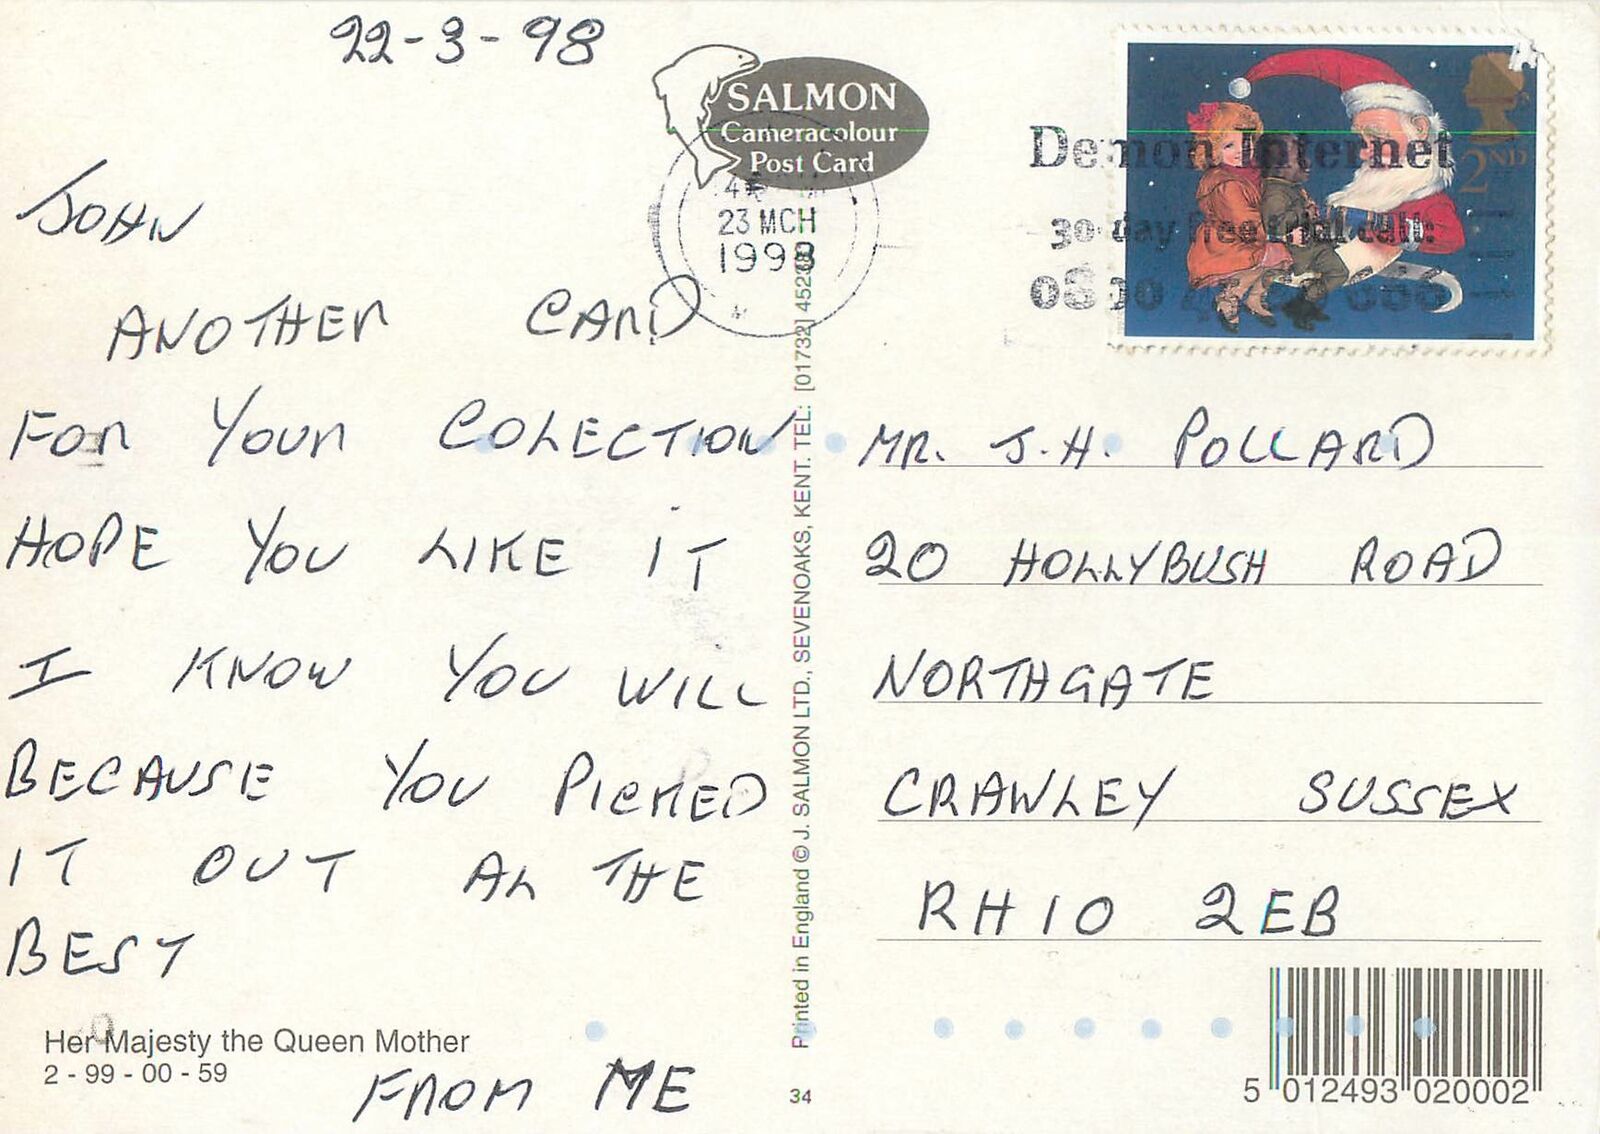 22-3-98
SALMON
Cameracolour
Post Card
23 MCH
1998
Demon Internet
30 day free trial call:
2ND
JOHN
ANOTHER CARD
FOR YOUR COLECTION
HOPE YOU LIKE IT
I KNOW YOU WILL
BECAUSE YOU PICKED
IT OUT AL THE
BEST
FROM ME
Her Majesty the Queen Mother
2 - 99 - 00 - 59
Printed in England © J. SALMON LTD., SEVENOAKS, KENT. TEL: [01732]
34
MR. J.H. POLLARD
20 HOLLYBUSH ROAD
NORTHGATE
CRAWLEY SUSSEX
RH10 2EB
5 012493 020002